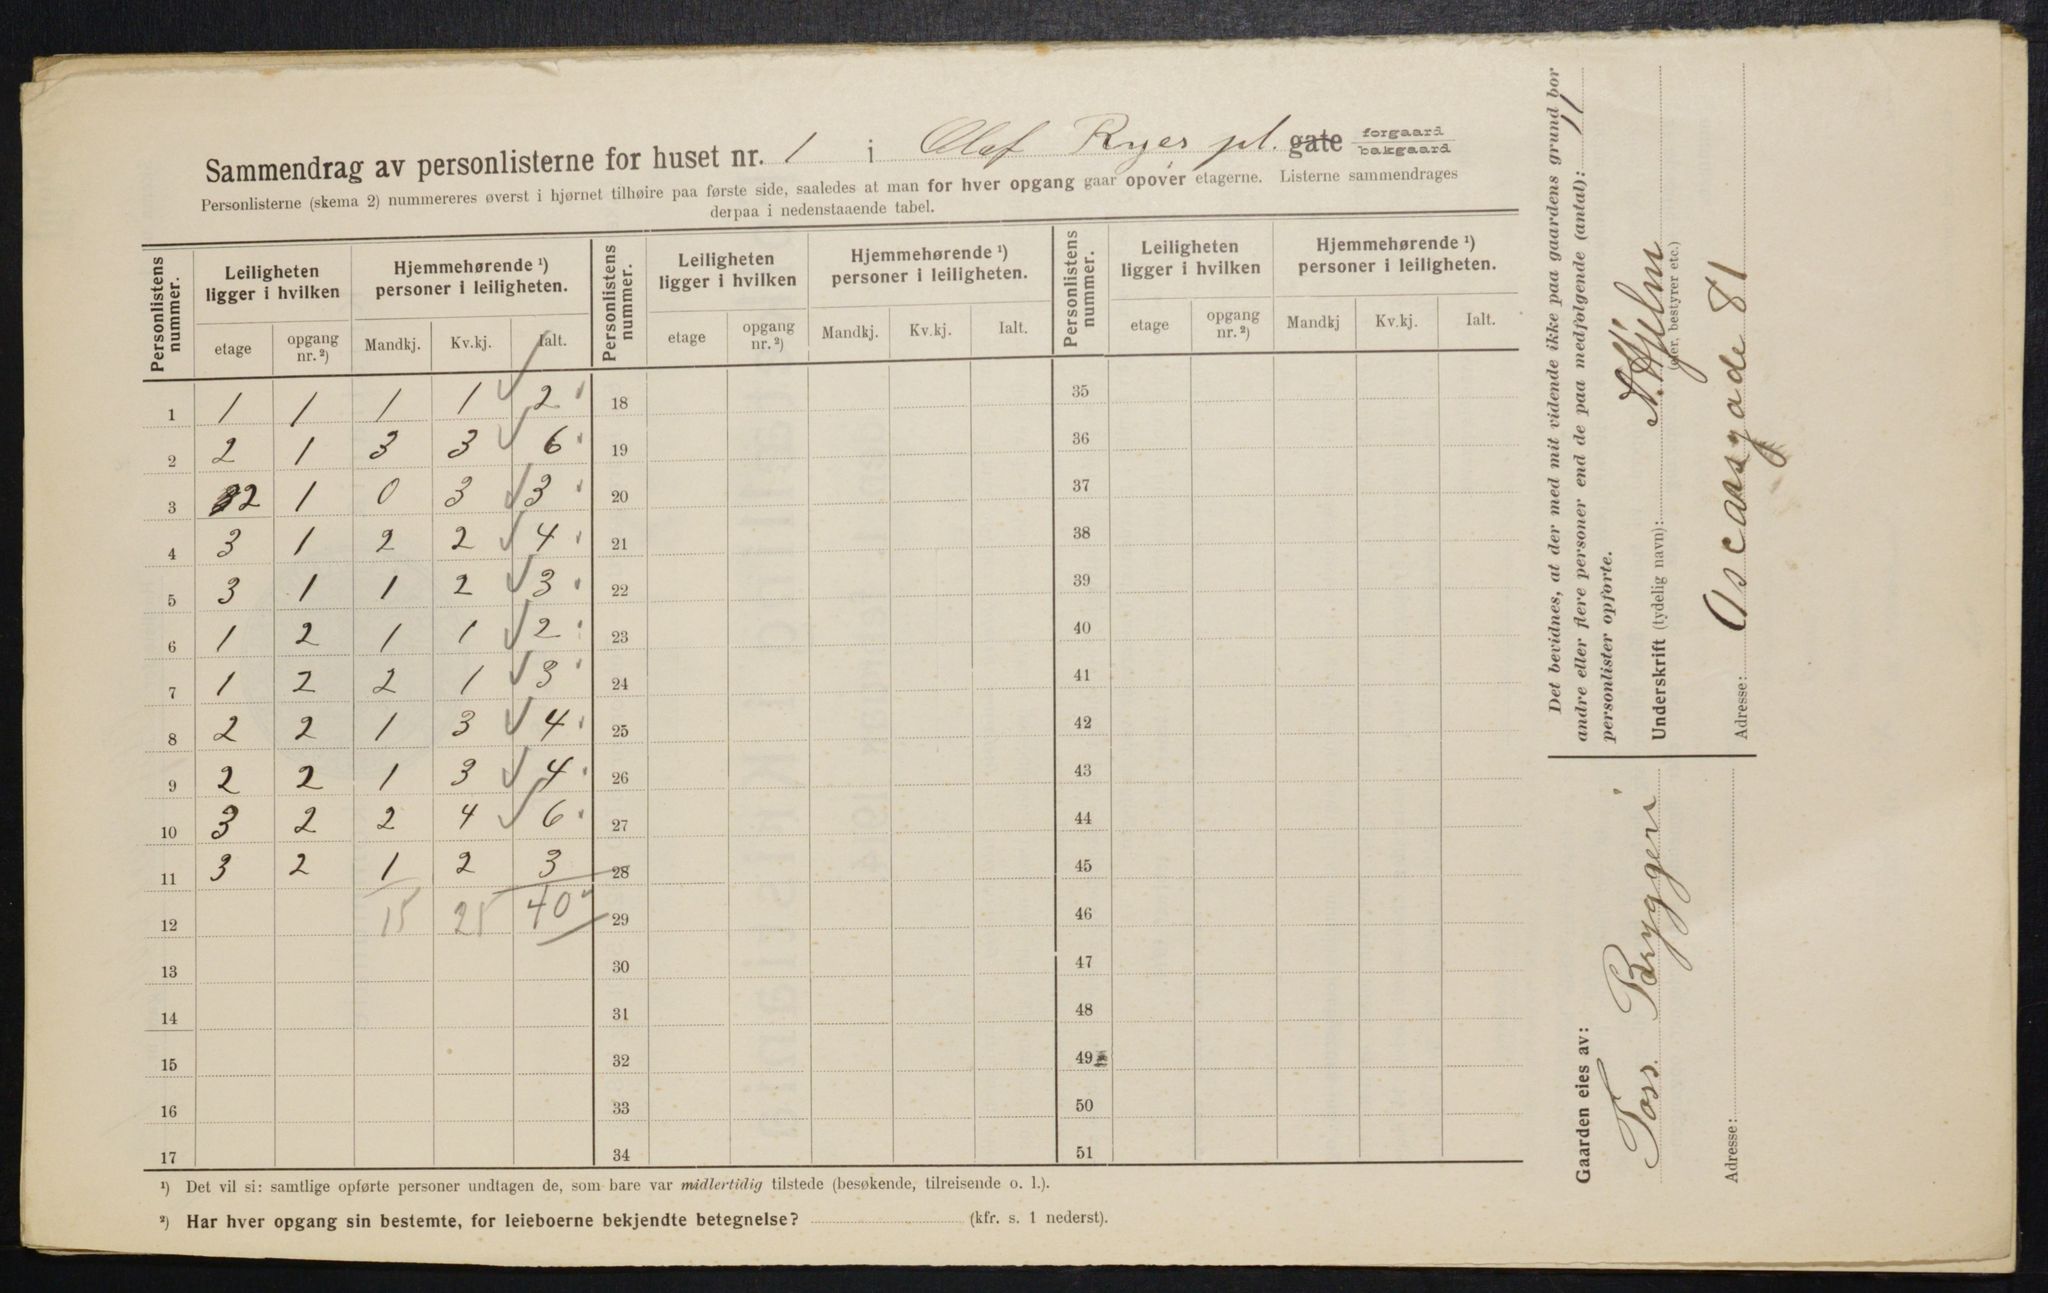 Sammendrag av personlisterne for huset nr. 1 i Olaf Ryes pl. gate forgaard bakgaard
Personlisterne (skema 2) nummereres øverst i hjørnet tilhøire paa første side, saaledes at man for hver opgang gaar opover etagerne. Listerne sammendrages
derpaa i nedenstaaende tabel.
Personlistens nummer. | Leiligheten ligger i hvilken | Hjemmehørende ¹) personer i leiligheten. | Personlistens nummer. | Leiligheten ligger i hvilken | Hjemmehørende ¹) personer i leiligheten. | Personlistens nummer. | Leiligheten ligger i hvilken | Hjemmehørende ¹) personer i leiligheten.
etage | opgang nr. ²) | Mandkj. | Kv.kj. | Ialt. | etage | opgang nr. ²) | Mandkj. | Kv.kj. | Ialt. | etage | opgang nr. ²) | Mandkj | Kv.kj. | Ialt.
1 | 1 | 1 | 1 | 1 | 2 | 18 | 35
2 | 2 | 1 | 3 | 3 | 6 | 19 | 36
3 | 2 | 1 | 0 | 3 | 3 | 20 | 37
4 | 3 | 1 | 2 | 2 | 4 | 21 | 38
5 | 3 | 1 | 1 | 2 | 3 | 22 | 39
6 | 1 | 2 | 1 | 1 | 2 | 23 | 40
7 | 1 | 2 | 2 | 1 | 3 | 24 | 41
8 | 2 | 2 | 1 | 3 | 4 | 25 | 42
9 | 2 | 2 | 1 | 3 | 4 | 26 | 43
10 | 3 | 2 | 2 | 4 | 6 | 27 | 44
11 | 3 | 2 | 1 | 2 | 3 | 28 | 45
12 | 15 | 25 | 40 | 29 | 46
13 | 30 | 47
14 | 31 | 48
15 | 32 | 49
16 | 33 | 50
17 | 34 | 51
¹) Det vil si: samtlige opførte personer undtagen de, som bare var midlertidig tilstede (besøkende, tilreisende o. l.).
²) Har hver opgang sin bestemte, for leieboerne bekjendte betegnelse? (kfr. s. 1 nederst).
Det bevidnes, at der med mit vidende ikke paa gaardens grund bor
andre eller flere personer end de paa medfølgende (antal): 11
personlister opførte.
Underskrift (tydelig navn): A. Hjelm
(eier, bestyrer etc.)
Adresse: Oscarsgade 81
Gaarden eies av:
Foss Bryggeri
Adresse: